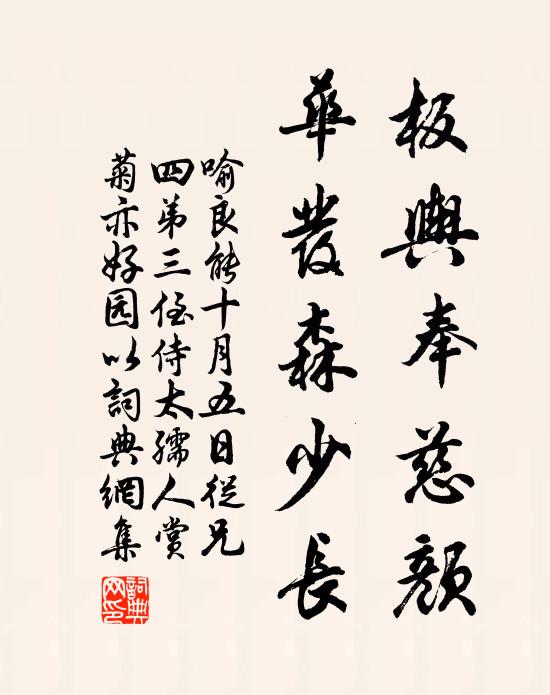 板輿奉慈顔
華發森少長
喻良能十月五日從兄
四弟三侄侍太孺人賞
菊亦好园以詞典網集
詞典網印